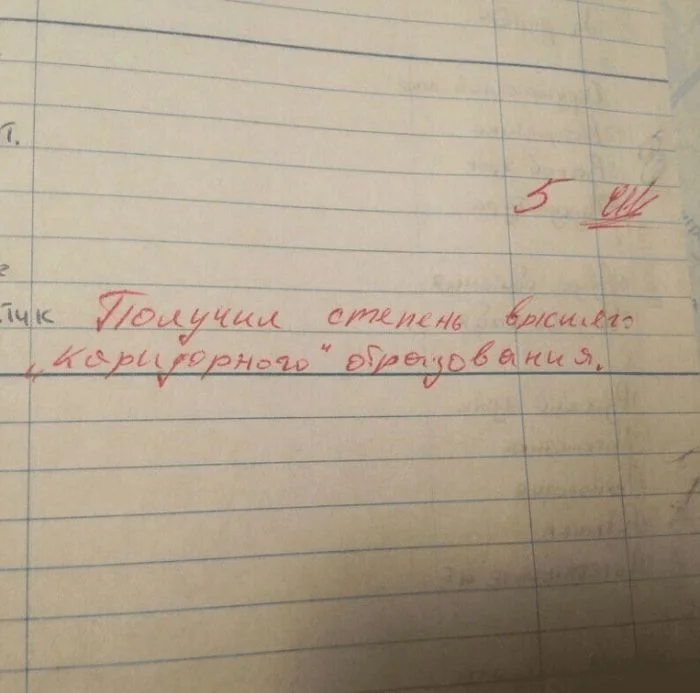 т.
5
тик Получил степень высшего
„коридорного“ образования.